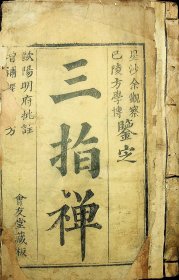 星沙余觀察
巴陵方學博
鑒定
三指禪
歐陽明府批註
增補
方
會友堂藏板